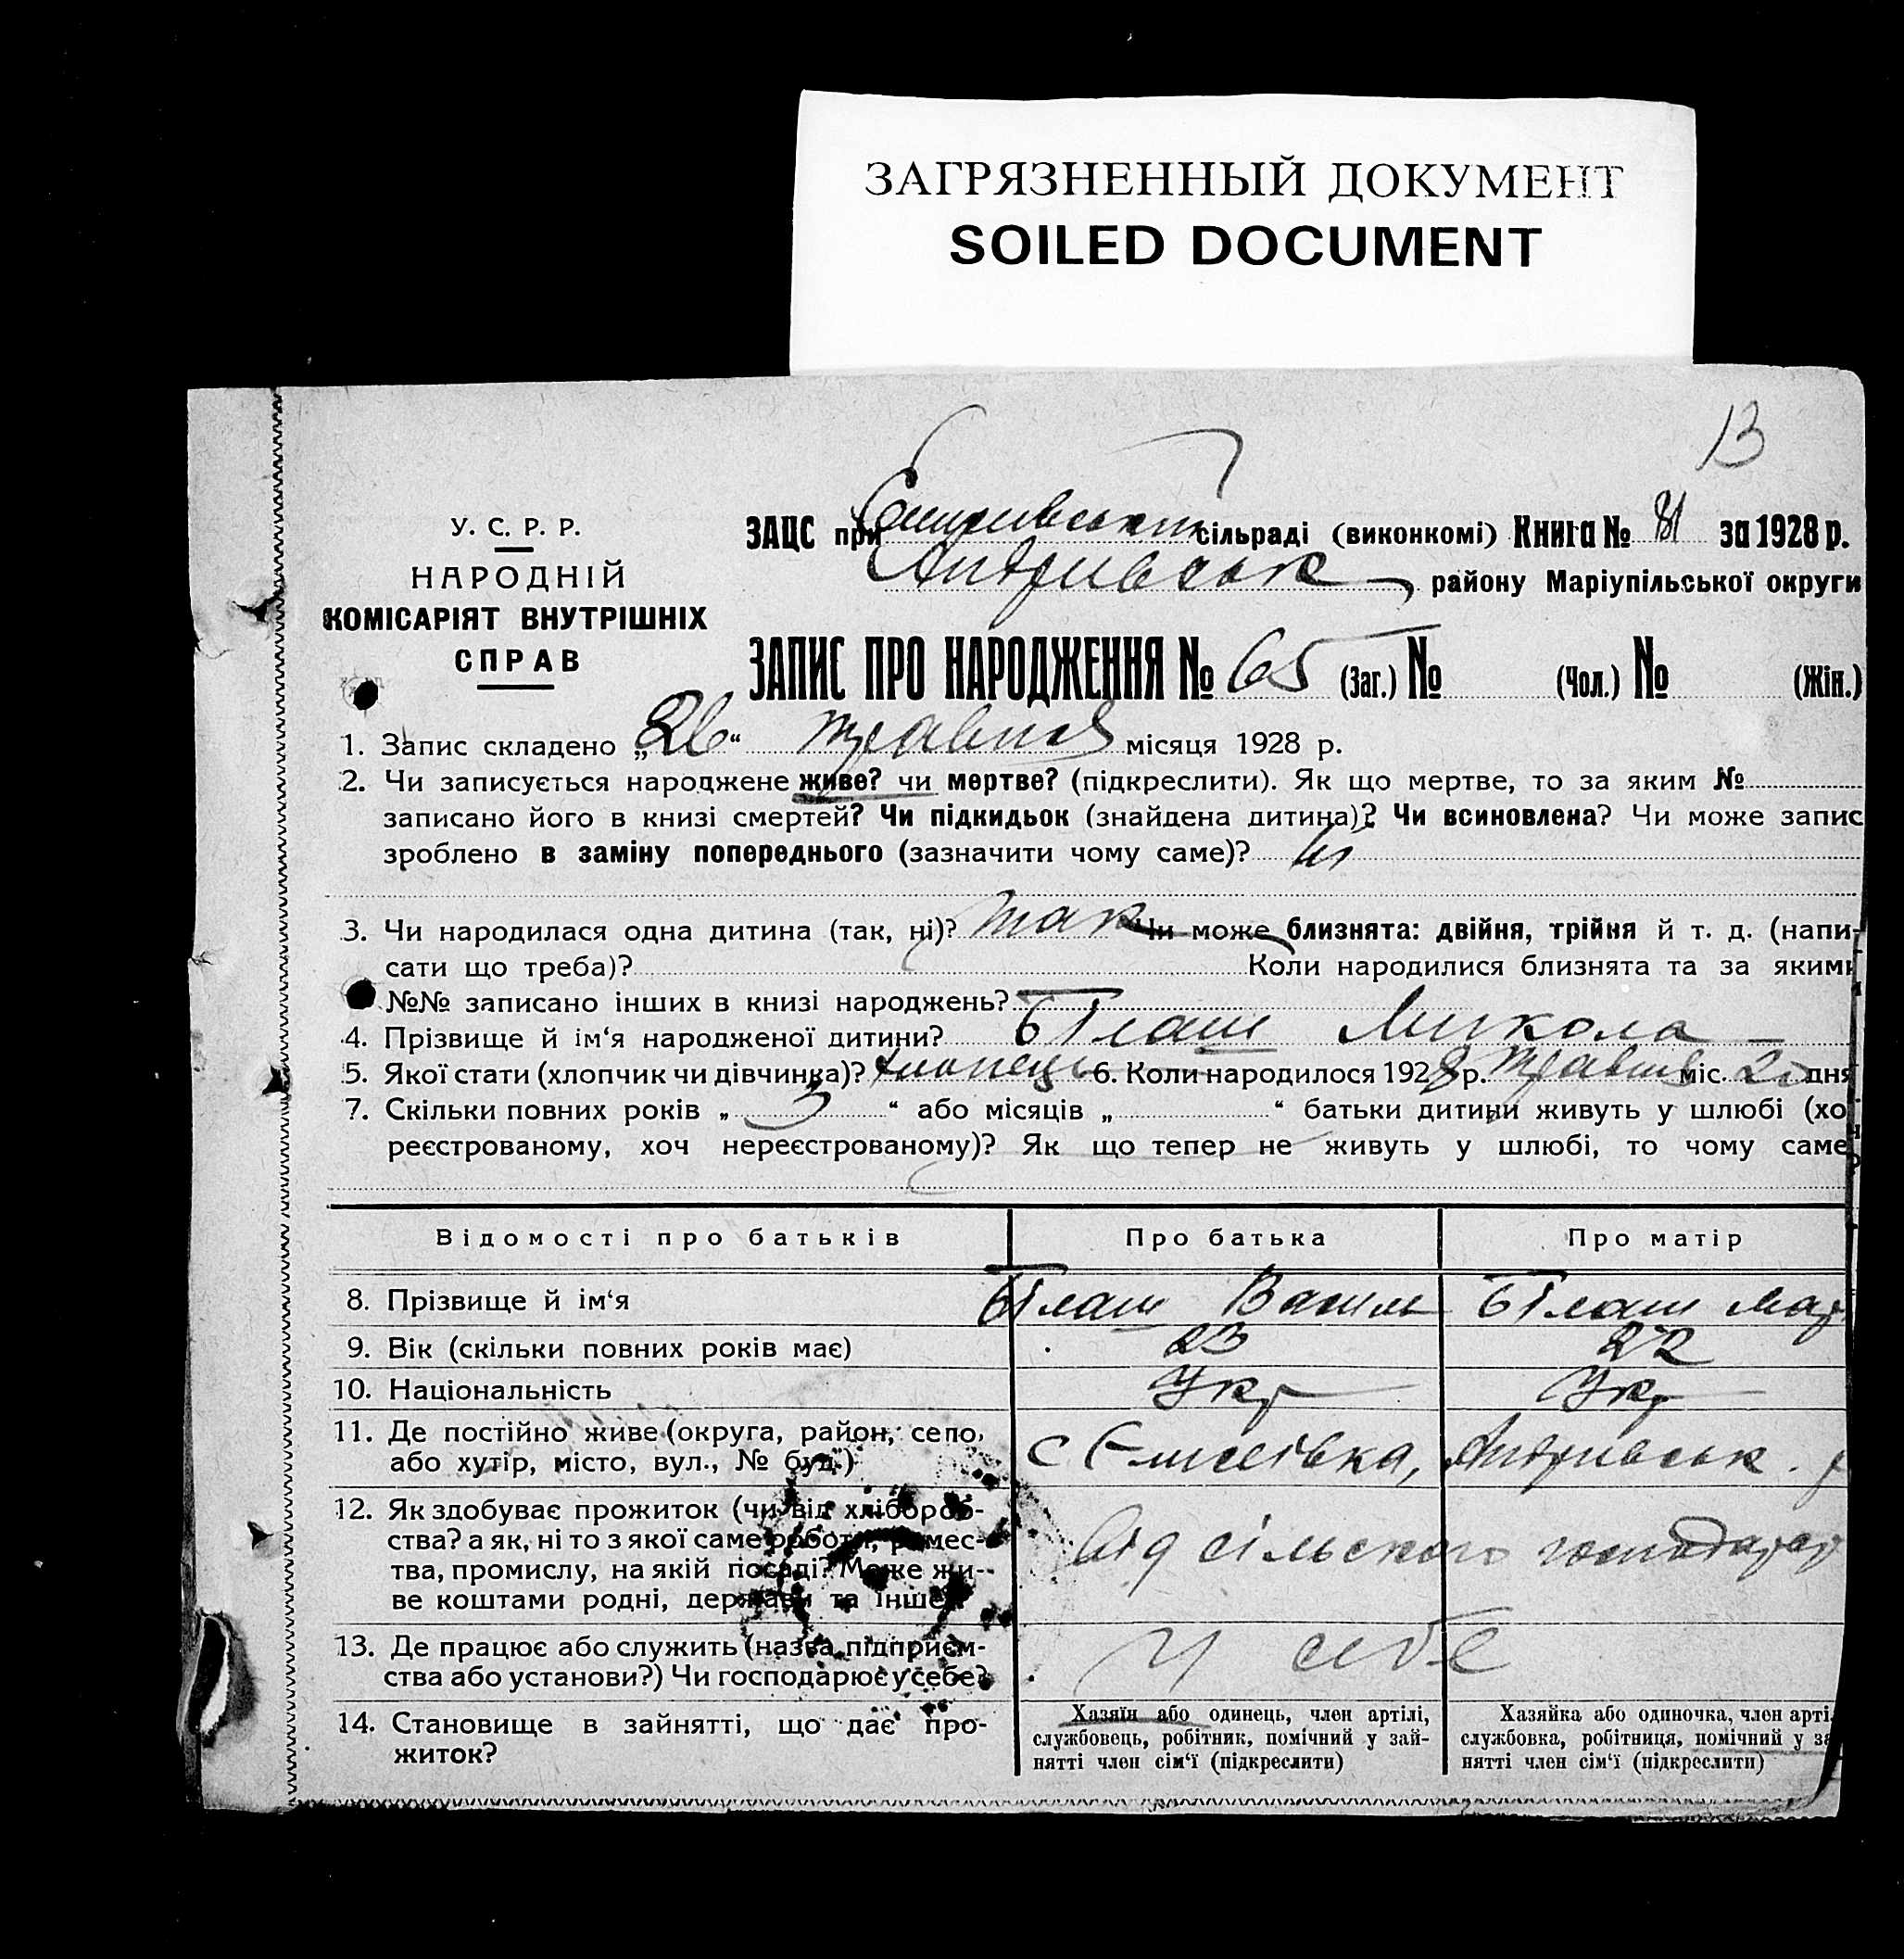 ЗАГРЯЗНЕННЫЙ ДОКУМЕНТ
SOILED DOCUMENT
13
У. С. Р. Р.
НАРОДНІЙ
КОМІСАРІЯТ ВНУТРІШНІХ
СПРАВ
ЗАЦС при сільраді (виконкомі) Книга № 81 за 1928 р.
Андриівськ району Маріупільської округи
ЗАПИС ПРО НАРОДЖЕННЯ № 65 (Заг.) № (Чол.) № (Жін.)
1. Запис складено „26“ травня місяця 1928 р.
2. Чи записується народжене живе? чи мертве? (підкреслити). Як що мертве, то за яким №
записано його в книзі смертей? Чи підкидьок (знайдена дитина)? Чи всиновлена? Чи може запис
зроблено в заміну попереднього (зазначити чому саме)? ні
3. Чи народилася одна дитина (так, ні)? так Чи може близнята: двійня, трійня й т. д. (напи-
сати що треба)? Коли народилися близнята та за якими
№№ записано інших в книзі народжень?
4. Прізвище й ім‘я народженої дитини? Білаш Микола
5. Якої стати (хлопчик чи дівчинка)? хлопець 6. Коли народилося 1928 р. травня міс. дня
7. Скільки повних років „ 3 “ або місяців „ “ батьки дитини живуть у шлюбі (хо
реєстрованому, хоч нереєстрованому)? Як що тепер не живуть у шлюбі, то чому саме
Відомості про батьків Про батька Про матір
8. Прізвище й ім‘я Білаш Василь Білаш Мар
9. Вік (скільки повних років має) 23 22
10. Національність Укр Укр
11. Де постійно живе (округа, район, село,
або хутір, місто, вул., № буд.) с Єлисеівка, Андриівськ. р
12. Як здобуває прожиток (чи від хлібороб-
ства? а як, ні то з якої саме роботи, ремес-
тва, промислу, на якій посаді? Може жи-
ве коштами родні, держави та інше)
Від сільского господарст
13. Де працює або служить (назва підприєм-
ства або установи?) Чи господарює у себе?
у себе
14. Становище в зайнятті, що дає про-
житок?
Хазяїн або одинець, член артілі,
службовець, робітник, помічний у зай-
нятті член сім‘ї (підкреслити)
Хазяйка або одиночка, член арті
службовка, робітниця, помічний у за
нятті член сім‘ї (підкреслити)